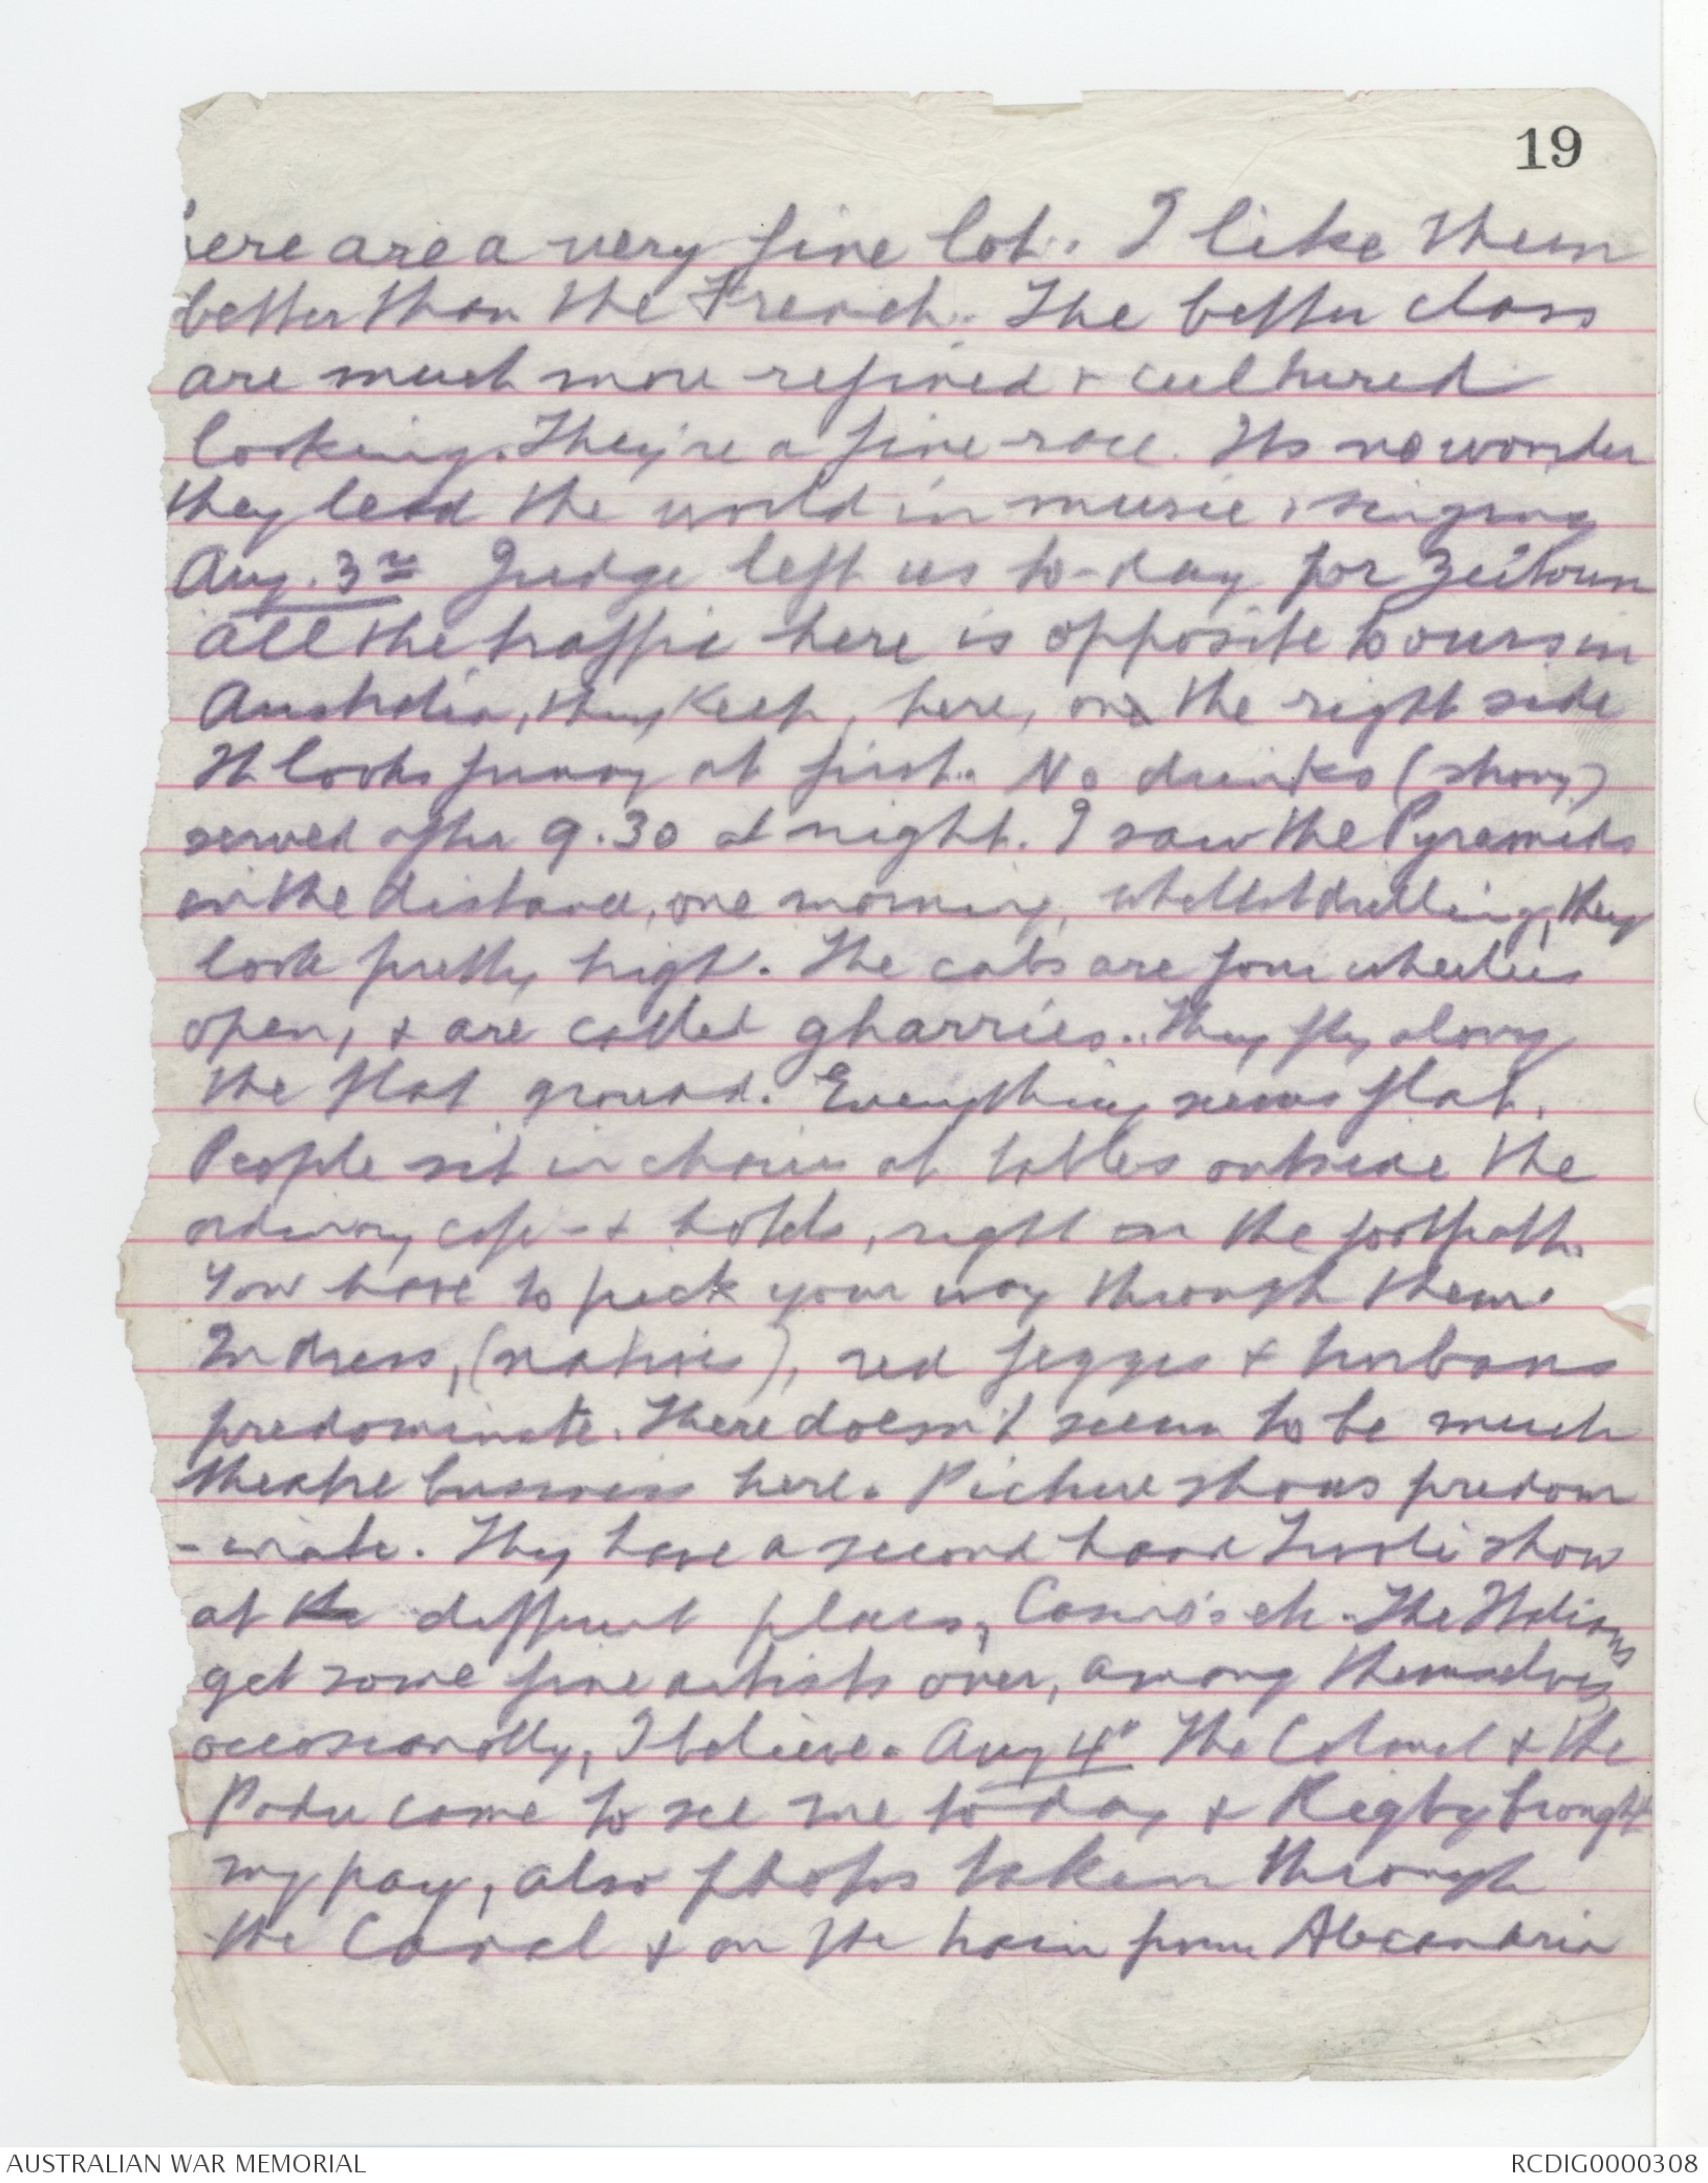 19
here are a very fine lot. I like them
better than the French. The better class
are much more refined & cultured
looking. They're a fine race. Its no wonder
they lead the world in music & singing
Aug. 3rd Judge left us to-day for Zeitoun
all the traffic here is opposite to ours in
Australia, they keep, here, on the right side
It looks funny at first. No drinks (strong)
served after 9.30 at night. I saw the Pyramids
in the distance, one morning, whilst drilling, they
look pretty high. The cabs are four wheelers
open, & are called gharries. They fly along
the flat ground. Everything seems flat.
People sit in chairs at tables outside the
ordinary cafe - & hotels, right on the footpath.
You have to pick your way through them.
In dress, (natives), red fezzes & turbans
predominate. There doesn't seem to be much
theatre business here. Picture shows predom
-inate. They have a second hand Tivoli show
at the different places, Casino's etc. The Italians
get some fine artists over, among themselves,
occasionally, I believe. Aug 4th The Colonel & the
Padre came to see me to-day & Rigby brought
my pay, also photos taken through
the Canal & on the train from Alexandria
AUSTRALIAN WAR MEMORIAL
RCDIG0000308